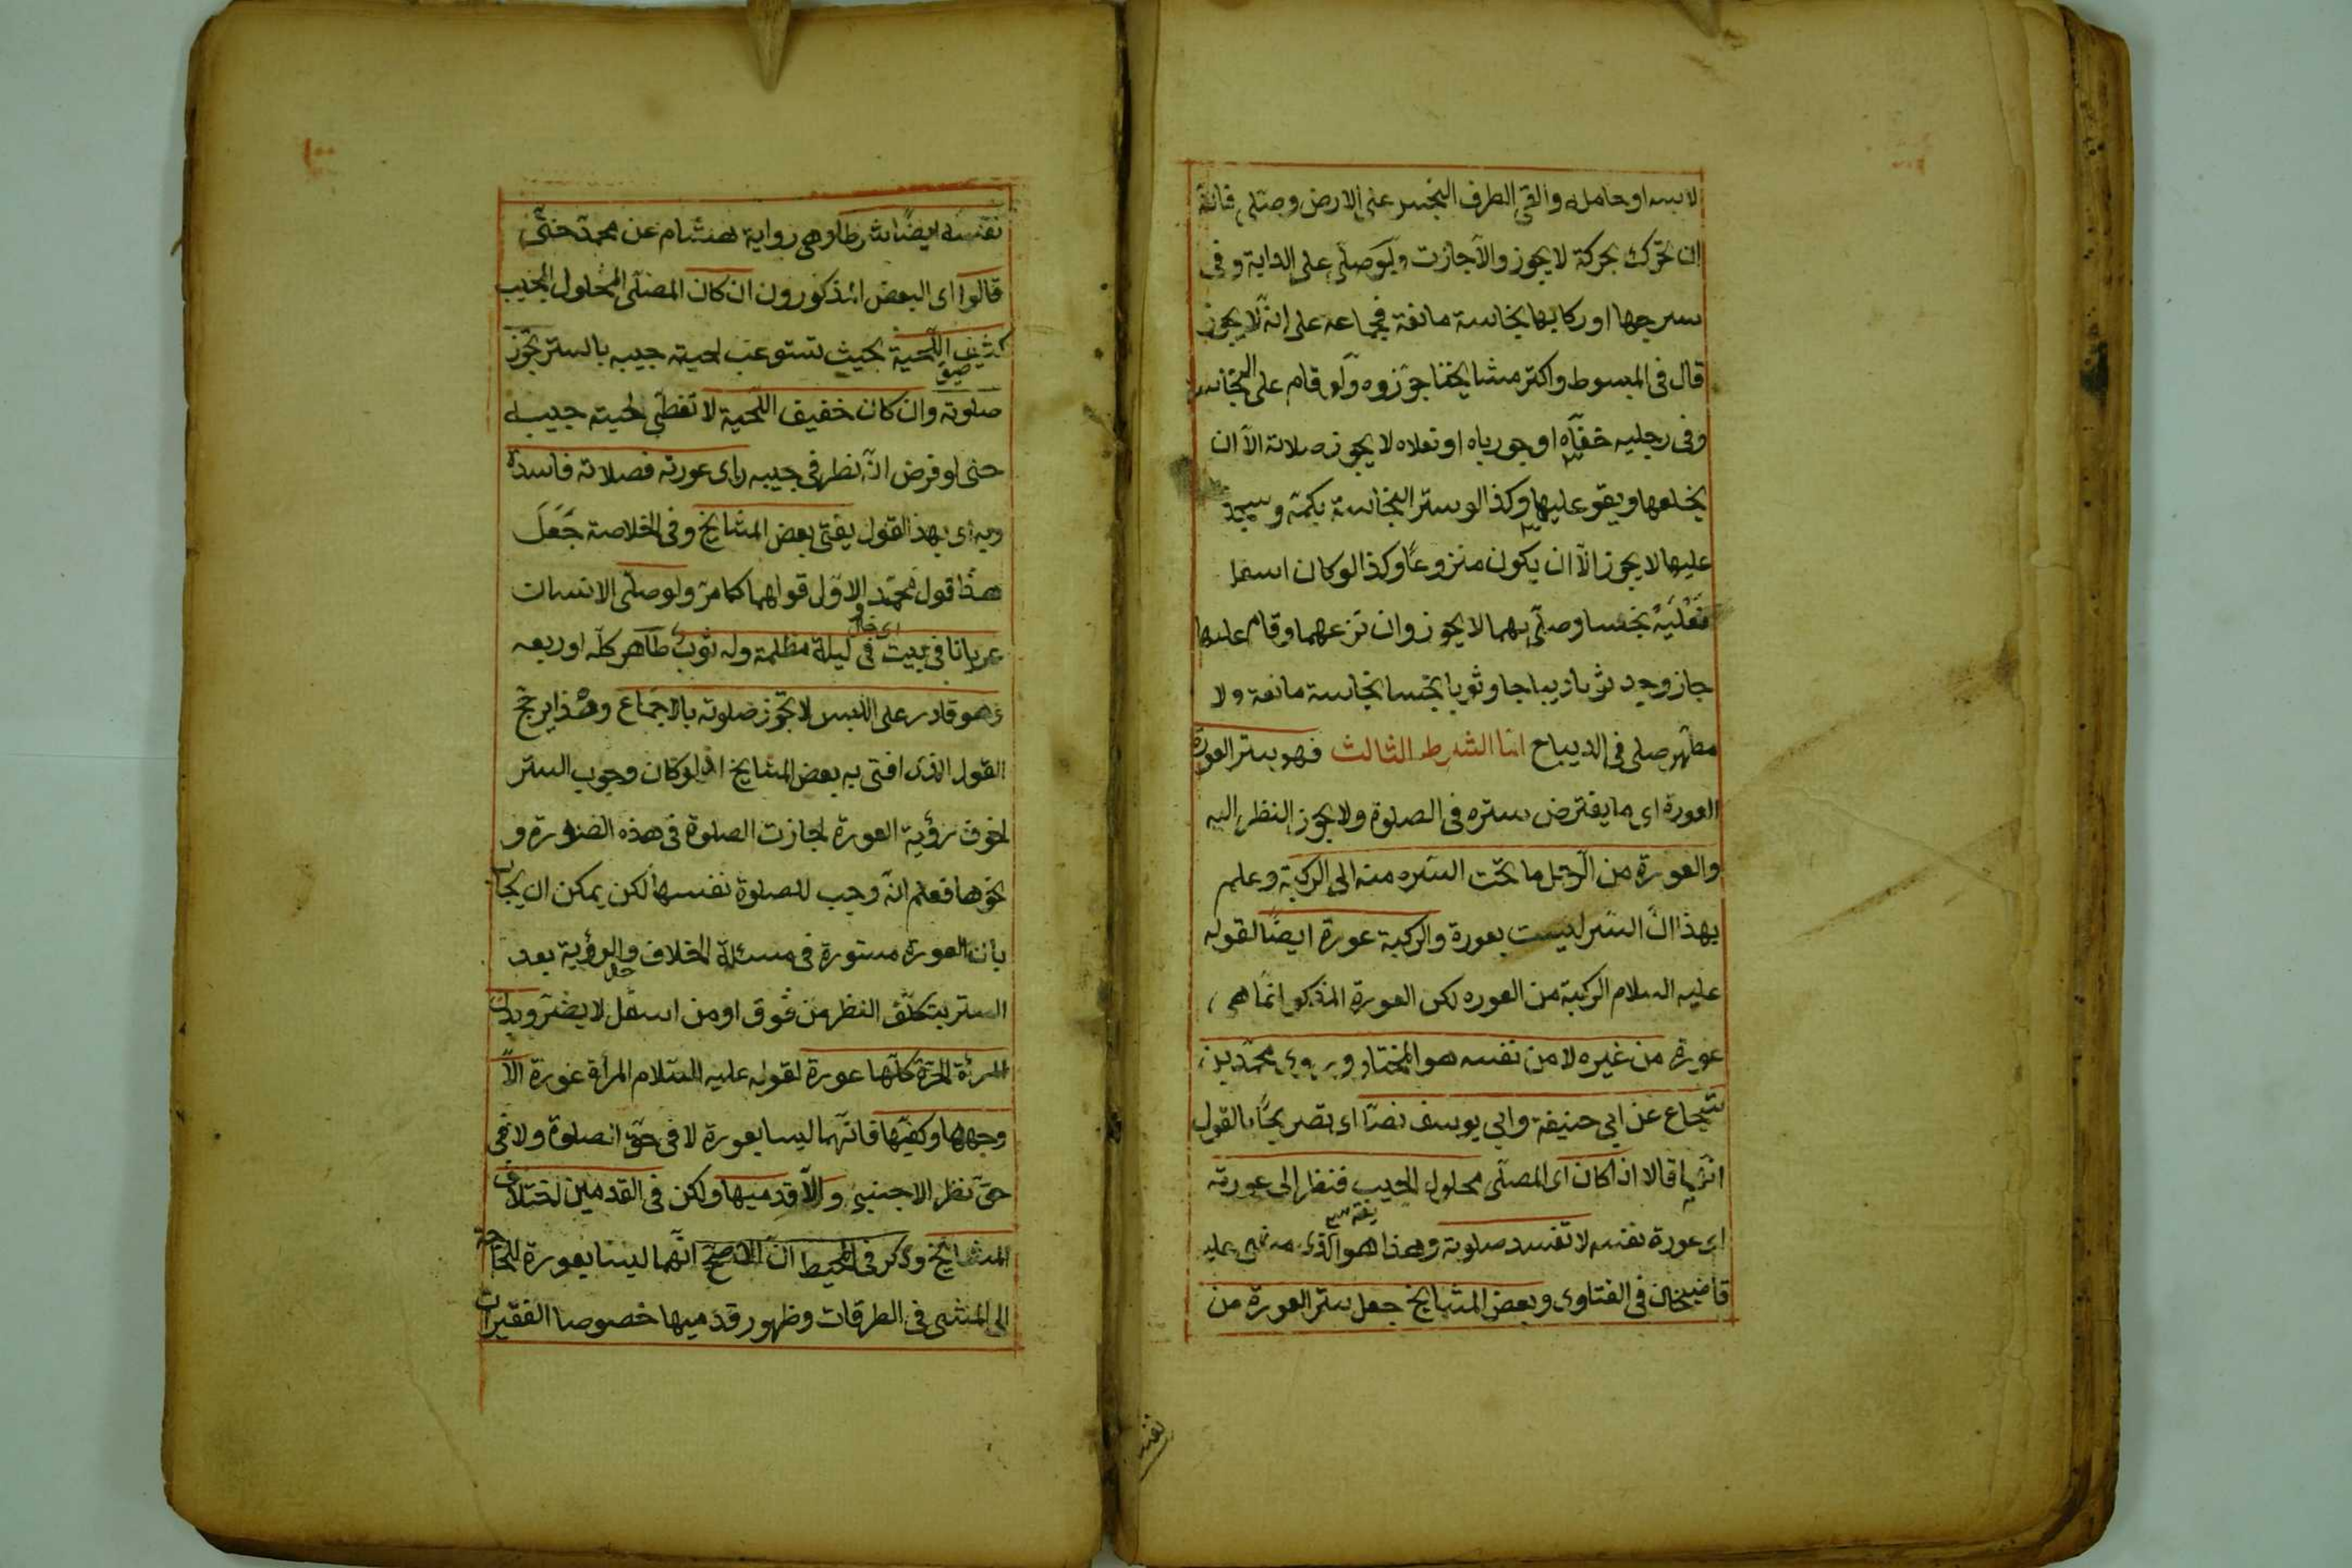 لابسه او حامله والقى الطرف النجس على الارض وصلى فانه
ان تحرك بحركة لا يجوز والا جازت ولو صلى على الدابة وفى
سرجها او ركابها نجاسة مانعة فجماعه على انه لا يجوز
قال فى المبسوط واكثر مشايخنا جوزوه ولو قام على النجاسة
وفى رجليه خفاه او جورباه او نعلاه لا يجوز صلاته الا ان
يخلعها ويقو عليها وكذا لو ستر النجاسة بكمه وسجد
عليها لا يجوز الا ان يكون منزوعا وكذا لو كان اسفل
نعليه نجسا وصلى بهما لا يجوز وان نزعهما وقام عليها
جاز وجد ثوبا ديباجا وثوبا نجسا نجاسة مانعة ولا
مطهر صلى فى الديباج اما الشرط الثالث فهو ستر العورة
العورة اى ما يفترض ستره فى الصلوة ولا يجوز النظر اليه
والعورة من الرجل ما تحت السره منه الى الركبة وعلم
بهذا ان السر ليست بعورة والركبة عورة ايضا لقوله
عليه السلام الركبة من العوره لكن العورة المذكور انما هى
عورة من غيره لا من نفسه هو المختار وروى محمد بن
شجاع عن ابى حنيفة وابى يوسف نصا اى تصريحا بالقول
انهما قالا اذا كان اى المصلى محلول الجيب فنظر الى عورته
اى عورة نفسه لا تفسد صلوته وهذا هو الذى مشى عليه
قاضيخان فى الفتاوى وبعض المشايخ جعل ستر العورة من
نفسه
نفسه ايضا شرطا وهى رواية هشام عن محمد حتى
قالوا اى البعض المذكورون ان كان المصلى المحلول الجيب
كثيف اللحية بحيث تستوعب لحيته جيبه بالستر تجوز
صلوته وان كان خفيف اللحية لا تغطى لحيته جيبه
حتى لو فرض انه نظر فى جيبه راى عورته فصلاته فاسدة
وبه اى بهذا القول يفتى بعض المشايخ وفى الخلاصة جعل
هذا قول محمد الاول قولهما كما مر ولو صلى الانسان
عريانا فى بيت فى ليلة مظلمة وله ثوب طاهر كله او ربعه
وهو قادر على اللبس لا تجوز صلوته بالاجماع وهذا يرجح
القول الذى افتى به بعض المشايخ اذ لو كان وجوب الستر
لخوف رؤية العورة لجازت الصلوة فى هذه الصورة و
نحوها فعلم انه وجب للصلوة نفسها لكن يمكن ان يجاب
بان العورة مستورة فى مسئلة الخلاف والرؤية بعد
الستر بتكلف النظر من فوق او من اسفل لا يضر وبدن
المرئة الحرة كلها عورة لقوله عليه السلام المرأة عورة الا
وجهها وكفيها فانهما ليسا بعورة لا فى حق الصلوة ولا فى
حق نظر الاجنبى والا قدميها ولكن فى القدمين اختلاف
المشايخ وذكر فى المحيط ان الاصح انهما ليستا بعورة للحاجة
الى المشى فى الطرقات وظهور قدميها خصوصا الفقيرات